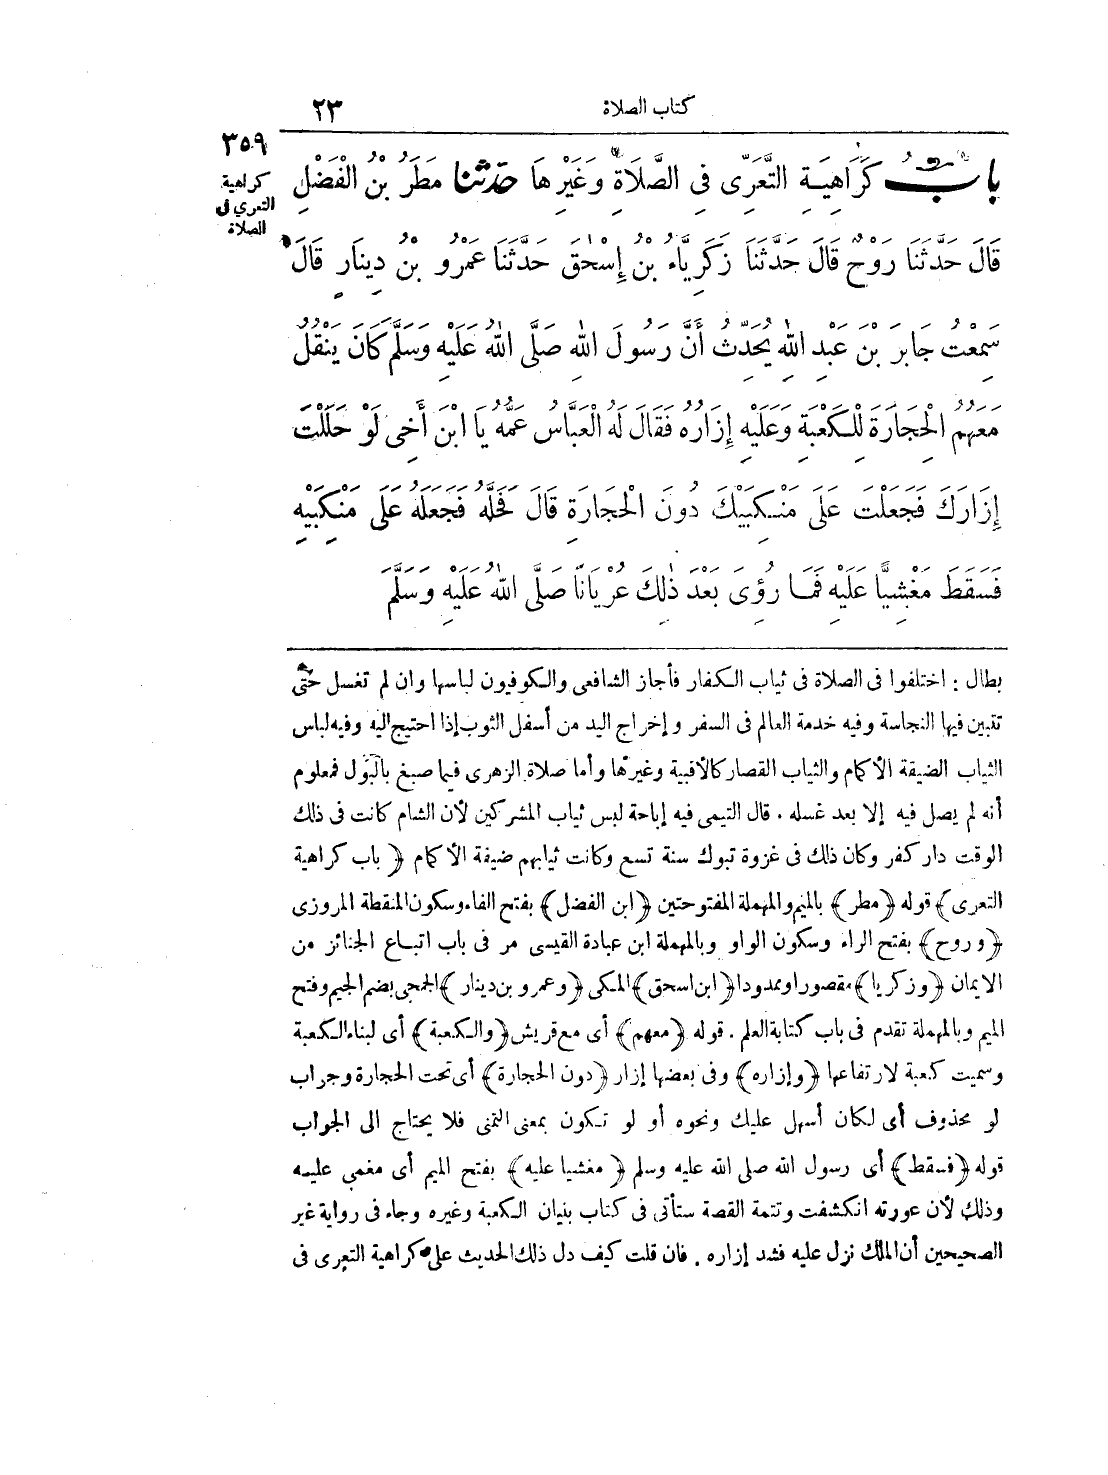 كتاب الصلاة ٢٣
٣٥٩
كراهية
التعري في
الصلاة
بَابُ كَرَاهِيَةِ التَّعَرِّى فِى الصَّلَاةِ وَغَيْرِهَا حَدَّثَنَا مَطَرُ بْنُ الْفَضْلِ
قَالَ حَدَّثَنَا رَوْحٌ قَالَ حَدَّثَنَا زَكَرِيَّاءُ بْنُ إِسْحٰقَ حَدَّثَنَا عَمْرُو بْنُ دِينَارٍ قَالَ
سَمِعْتُ جَابِرَ بْنَ عَبْدِ اللّٰهِ يُحَدِّثُ أَنَّ رَسُولَ اللّٰهِ صَلَّى اللّٰهُ عَلَيْهِ وَسَلَّمَ كَانَ يَنْقُلُ
مَعَهُمُ الْحِجَارَةَ لِلْكَعْبَةِ وَعَلَيْهِ إِزَارُهُ فَقَالَ لَهُ الْعَبَّاسُ عَمُّهُ يَا ابْنَ أَخِى لَوْ حَلَلْتَ
إِزَارَكَ فَجَعَلْتَ عَلَى مَنْكِبَيْكَ دُونَ الْحِجَارَةِ قَالَ فَحَلَّهُ فَجَعَلَهُ عَلَى مَنْكِبَيْهِ
فَسَقَطَ مَغْشِيًّا عَلَيْهِ فَمَا رُؤِىَ بَعْدَ ذٰلِكَ عُرْيَانًا صَلَّى اللّٰهُ عَلَيْهِ وَسَلَّمَ
بطال : اختلفوا فى الصلاة فى ثياب الكفار فأجاز الشافعى والكوفيون لباسها وان لم تغسل حتى
تتبين فيها النجاسة وفيه خدمة العالم فى السفر وإخراج اليد من أسفل الثوب إذا احتيج اليه وفيه لباس
الثياب الضيقة الأكمام والثياب القصار كالأقبية وغيرها وأما صلاة الزهرى فيما صبغ بالبول فمعلوم
أنه لم يصل فيه إلا بعد غسله . قال التيمى فيه إباحة لبس ثياب المشركين لأن الشام كانت فى ذلك
الوقت دار كفر وكان ذلك فى غزوة تبوك سنة تسع وكانت ثيابهم ضيقة الأكمام ﴿ باب كراهية
التعرى﴾ قوله ﴿مطر﴾ بالميم والمهملة المفتوحتين ﴿ابن الفضل﴾ بفتح الفاء وسكون المنقطة المروزى
﴿وروح﴾ بفتح الراء وسكون الواو وبالمهملة ابن عبادة القيسى مر فى باب اتباع الجنائز من
الايمان ﴿وزكريا﴾ مقصورا وممدودا ﴿ابن اسحق﴾ المكى ﴿وعمرو بن دينار﴾ الجمحى بضم الجيم وفتح
الميم وبالمهملة تقدم فى باب كتابة العلم . قوله ﴿معهم﴾ أى مع قريش ﴿والكعبة﴾ أى لبناء الكعبة
وسميت كعبة لارتفاعها ﴿وإزاره﴾ وفى بعضها إزار ﴿دون الحجارة﴾ أى تحت الحجارة وجراب
لو محذوف أى لكان أسهل عليك ونحوه أو لو تكون بمعنى التمنى فلا يحتاج الى الجواب
قوله ﴿فسقط﴾ أى رسول الله صلى الله عليه وسلم ﴿ مغشيا عليه﴾ بفتح الميم أى مغمى عليه
وذلك لأن عورته انكشفت وتتمة القصة ستأتى فى كتاب بنيان الكعبة وغيره وجاء فى رواية غير
الصحيحين أن الملك نزل عليه فشد إزاره . فان قلت كيف دل ذلك الحديث على كراهية التعرى فى